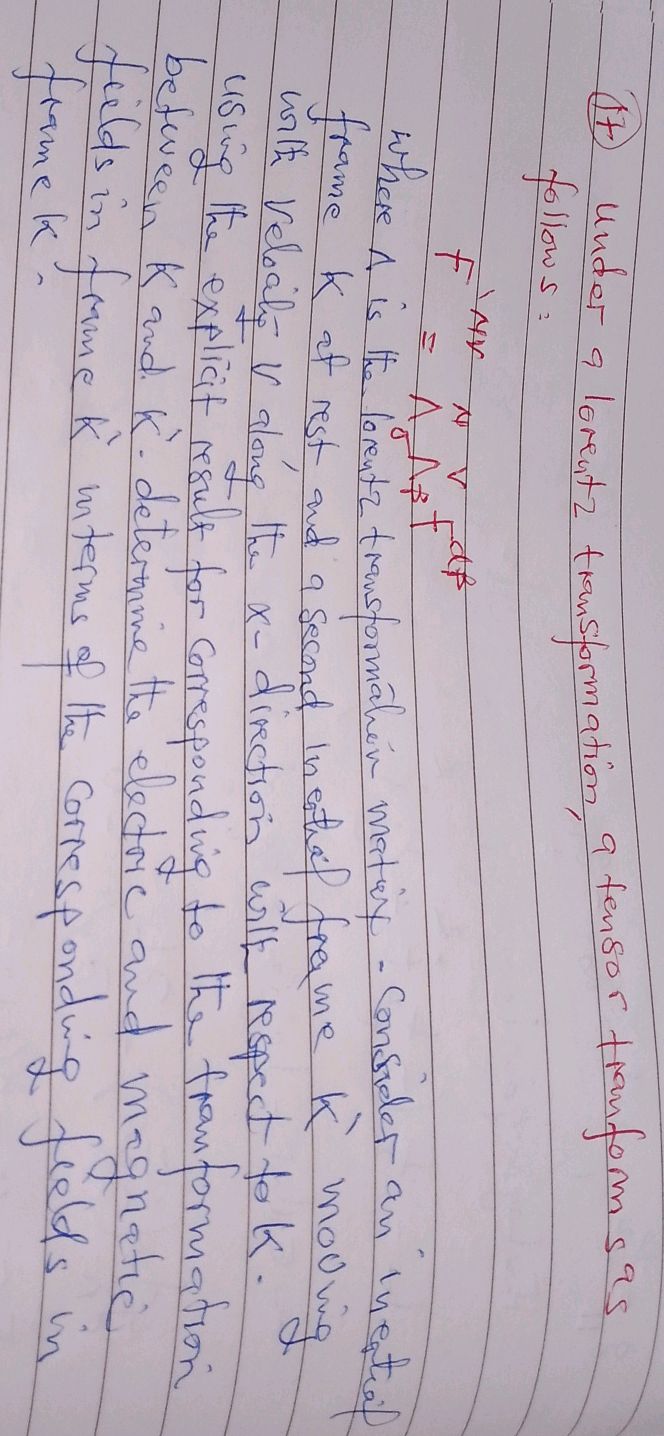 17 Under a lorentz transformation, a tensor tranforms as
follows:
F'^μν = Λ^μ_α Λ^ν_β F^αβ
where Λ is the lorentz transformation matrix - Consider an inertial
frame K at rest and a second inertial frame K' moving
with velocity v along the x-direction with respect to K.
using the explicit result for corresponding to the tranformation
between K and K'. determine the electric and magnetic
fields in frame K' interms of the corresponding fields in
frame K.